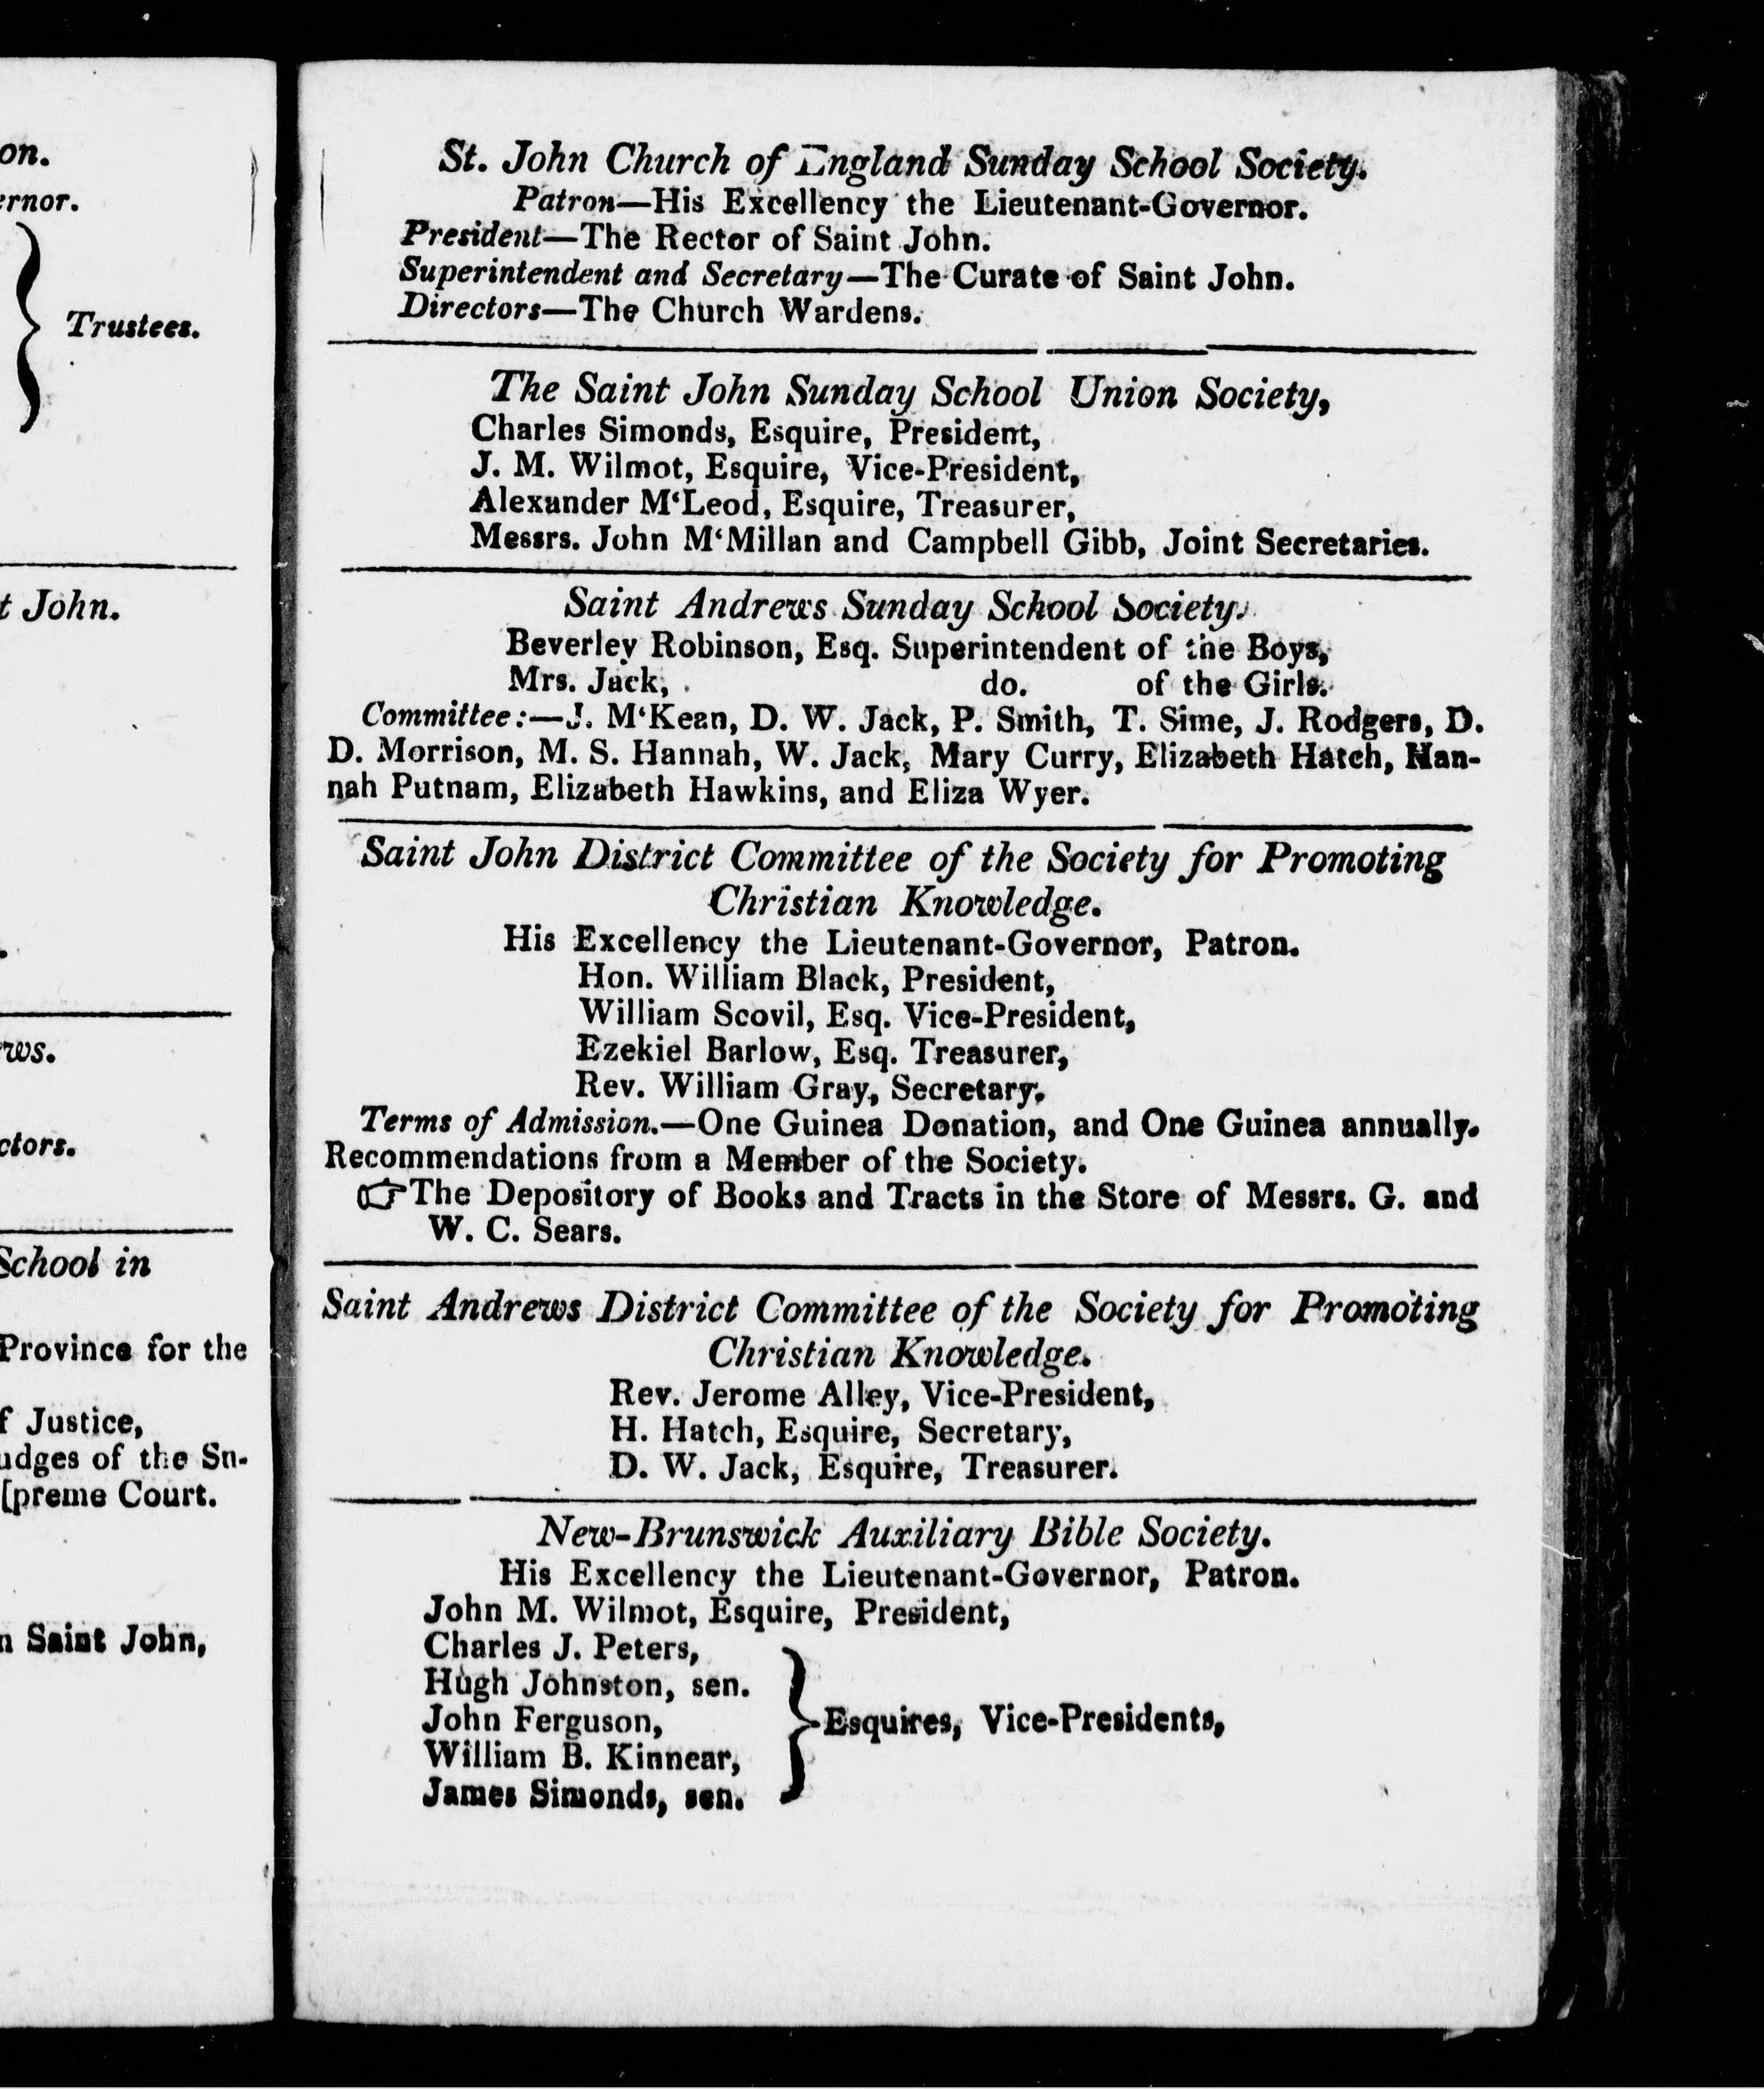 on.
ernor.
Trustees.
t John.
ews.
ctors.
School in
Province for the
f Justice,
udges of the Su-
[preme Court.
n Saint John,
St. John Church of England Sunday School Society.
Patron—His Excellency the Lieutenant-Governor.
President—The Rector of Saint John.
Superintendent and Secretary—The Curate of Saint John.
Directors—The Church Wardens.
The Saint John Sunday School Union Society,
Charles Simonds, Esquire, President,
J. M. Wilmot, Esquire, Vice-President,
Alexander M‘Leod, Esquire, Treasurer,
Messrs. John M‘Millan and Campbell Gibb, Joint Secretaries.
Saint Andrews Sunday School Society.
Beverley Robinson, Esq. Superintendent of the Boys,
Mrs. Jack, do. of the Girls.
Committee:—J. M‘Kean, D. W. Jack, P. Smith, T. Sime, J. Rodgers, D.
D. Morrison, M. S. Hannah, W. Jack, Mary Curry, Elizabeth Hatch, Han-
nah Putnam, Elizabeth Hawkins, and Eliza Wyer.
Saint John District Committee of the Society for Promoting
Christian Knowledge.
His Excellency the Lieutenant-Governor, Patron.
Hon. William Black, President,
William Scovil, Esq. Vice-President,
Ezekiel Barlow, Esq. Treasurer,
Rev. William Gray, Secretary.
Terms of Admission.—One Guinea Donation, and One Guinea annually.
Recommendations from a Member of the Society.
☞The Depository of Books and Tracts in the Store of Messrs. G. and
W. C. Sears.
Saint Andrews District Committee of the Society for Promoting
Christian Knowledge.
Rev. Jerome Alley, Vice-President,
H. Hatch, Esquire, Secretary,
D. W. Jack, Esquire, Treasurer.
New-Brunswick Auxiliary Bible Society.
His Excellency the Lieutenant-Governor, Patron.
John M. Wilmot, Esquire, President,
Charles J. Peters,
Hugh Johnston, sen.
John Ferguson,
Esquires, Vice-Presidents,
William B. Kinnear,
James Simonds, sen.